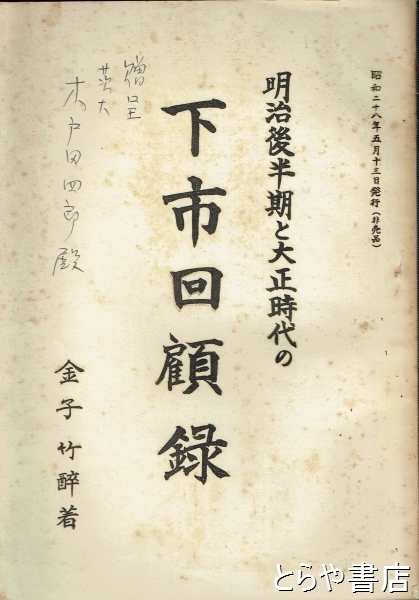 昭和二十八年五月十三日発行（非売品）
明治後半期と大正時代の
下市回顧録
金子竹醉著
贈呈
茨大
木戸田四郎殿
とらや書店